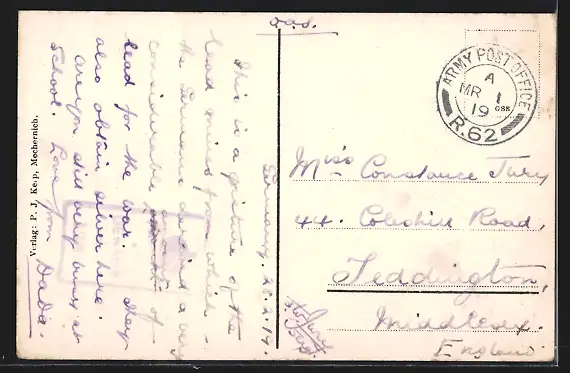 O.A.S.
Germany. 28.2.19.
This is a picture of the
lead mines from which
the Germans derived a very
considerable amount of
lead for the war. They
also obtain silver here.
Are you still very busy at
School. Love from Dada.
Verlag: P. J. Kelp, Mechernich.
ARMY POST OFFICE
A
MR 1
19
R.62
Miss Constance Tury
44. Coleshill Road,
Teddington,
Middlesex.
England